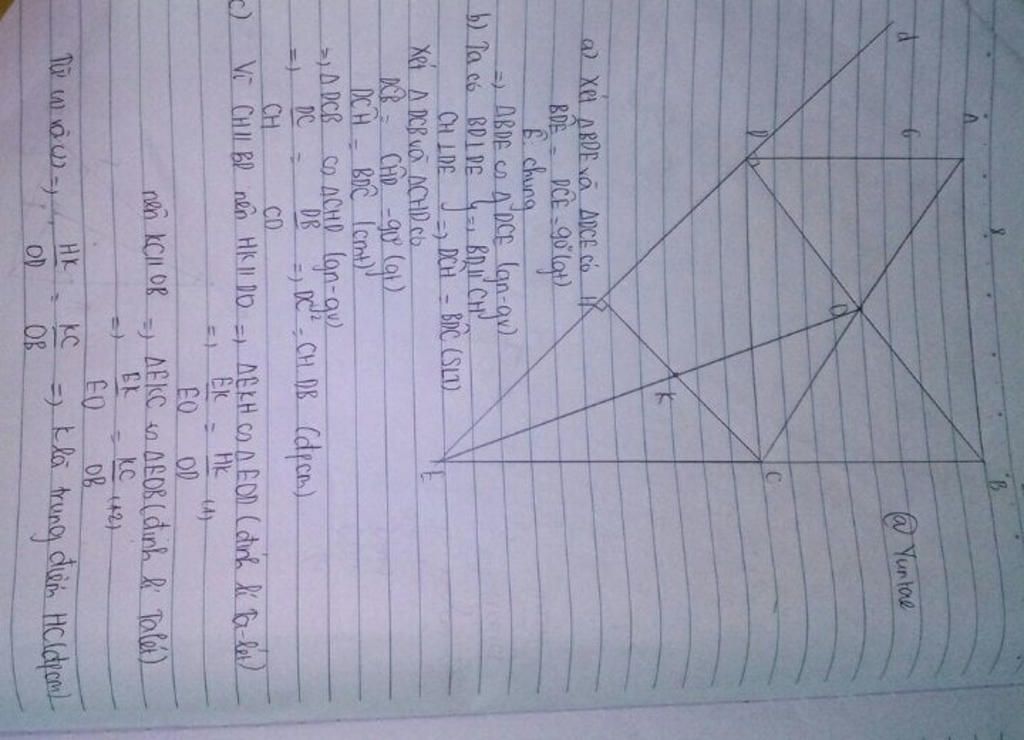 d
A
8
B
6
D
O
H
K
C
E
@ Yuntae
a) Xét ΔBDE và ΔDCE có
BD̂E = DĈE = 90° (gt)
Ê chung
=> ΔBDE ∽ ΔDCE (gn-gv)
b) Ta có BD⊥DE } => BD // CH
CH⊥DE => DĈH = BD̂C (SLT)
Xét ΔDCB và ΔCHD có
DĈB = CĤD = 90° (gt)
DĈH = BD̂C (cmt)
=> ΔDCB ∽ ΔCHD (gn-gv)
=> DC/CH = DB/CD => DC² = CH.DB (đpcm)
c) Vì CH // BD nên HK // DO => ΔEKH ∽ ΔEOD (định lí Ta-lét)
=> EK/EO = HK/OD (1)
nên KC // OB => ΔEKC ∽ ΔEOB (định lí Talét)
=> EK/EO = KC/OB (2)
Từ (1) và (2) => HK/OD = KC/OB => K là trung điểm HC (đpcm)